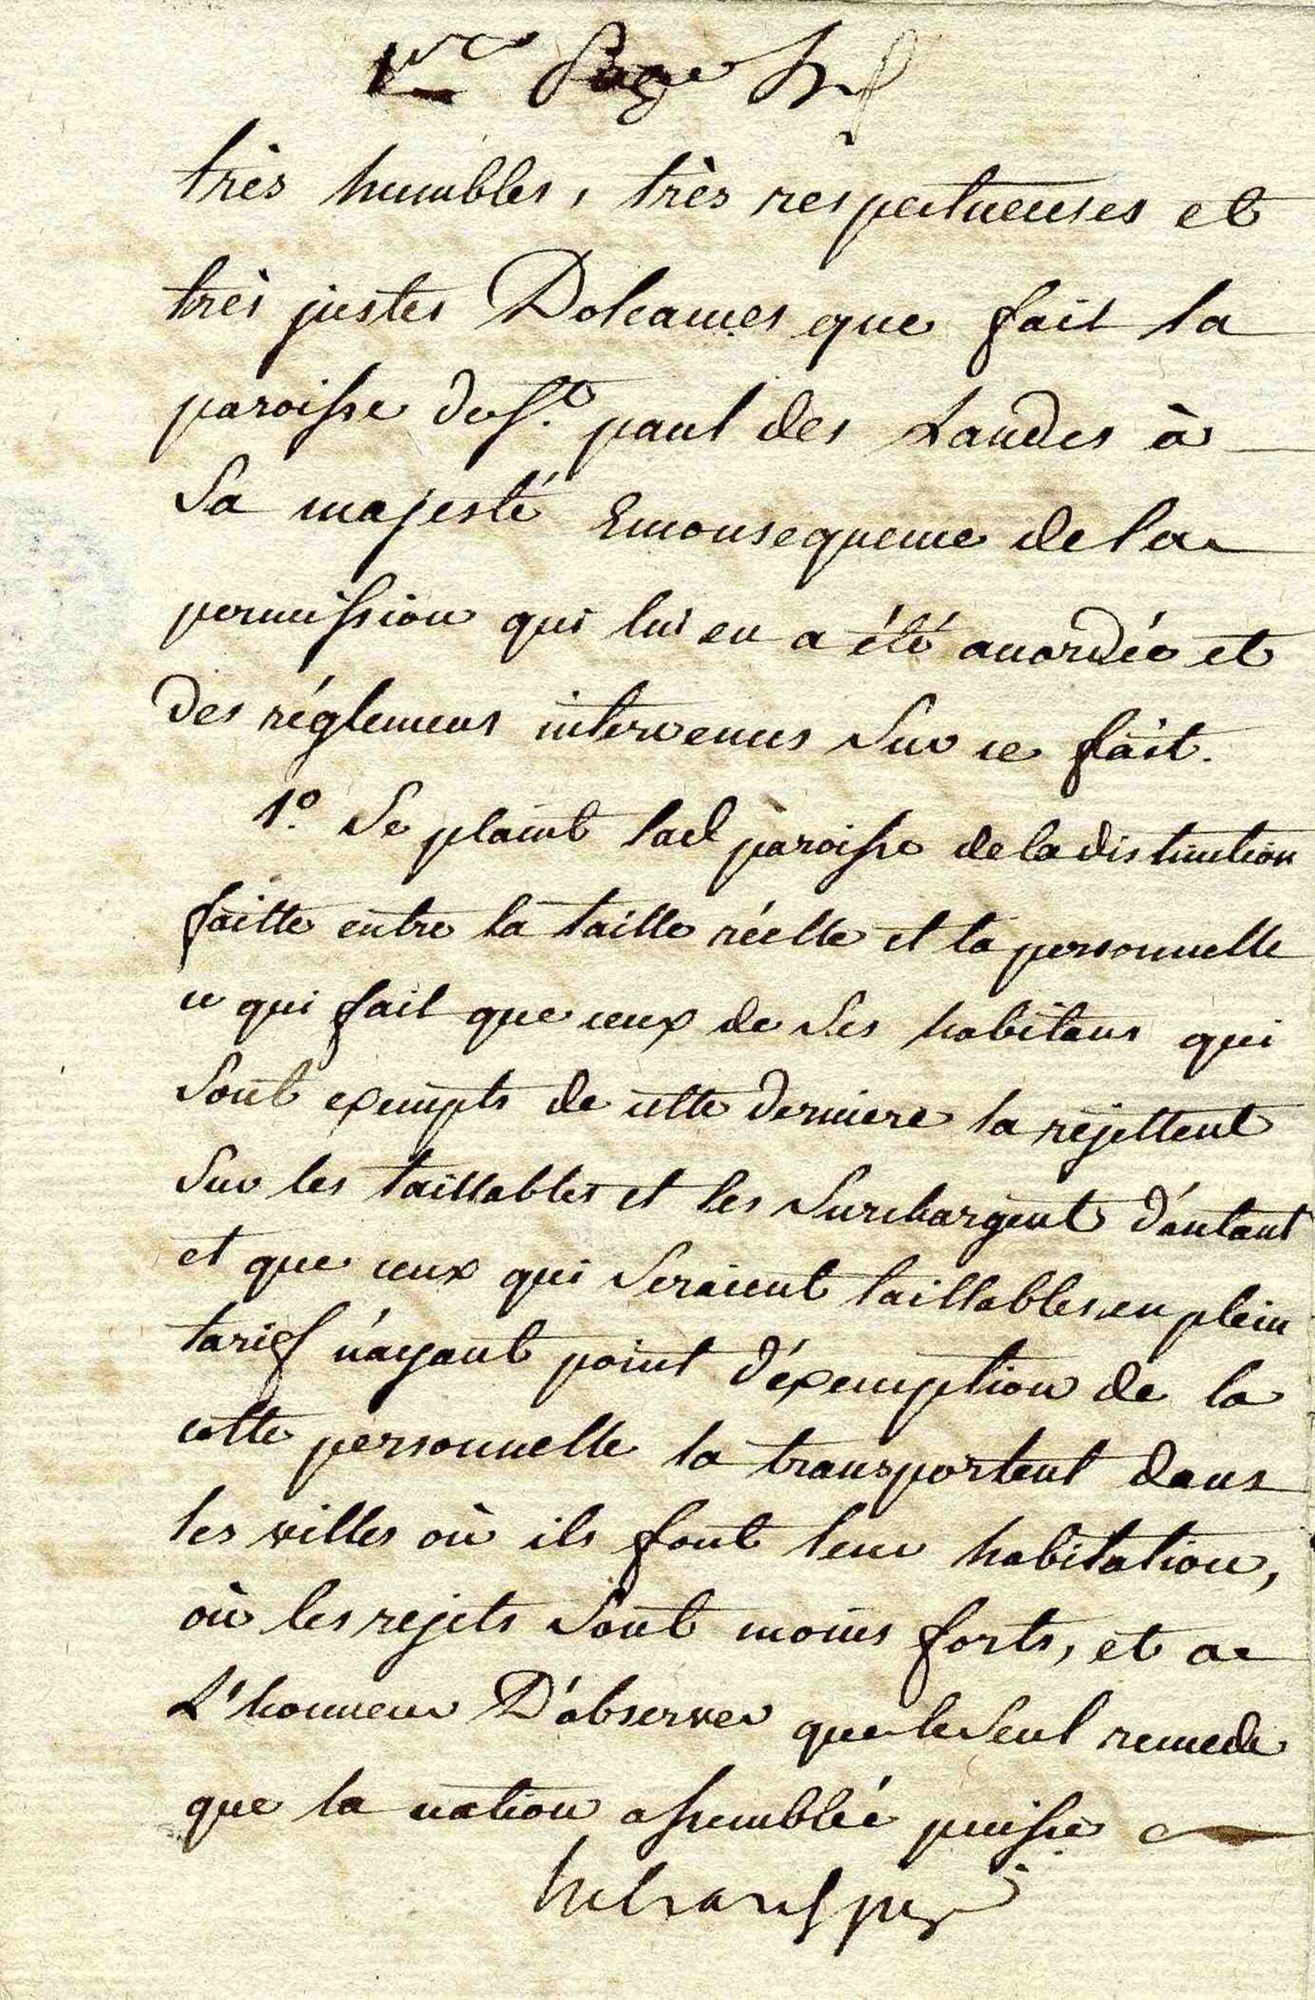 1re Page
très humbles, très respectueuses et
très justes Doléances que fait la
paroisse de St. paul des Landes à
Sa majesté Enconsequence de la
permission qui lui en a été accordée et
des réglemens intervenus Sur ce fait.
1º. Se plaint lad paroisse de la distinction
faitte entre la taille réelle et la personnelle
ce qui fait que ceux de Ses habitans qui
Sont exempts de cette derniere la rejettent
Sur les taillables et les Surchargent d'autant
et que ceux qui Seraient taillables en plein
tarif n'ayant point d'éxemption de la
cotte personnelle la transportent dans
les villes où ils font leur habitation,
où les rejets Sont moins forts, et a
L'honneur D'observer que le Seul remede
que la nation assemblée puisse